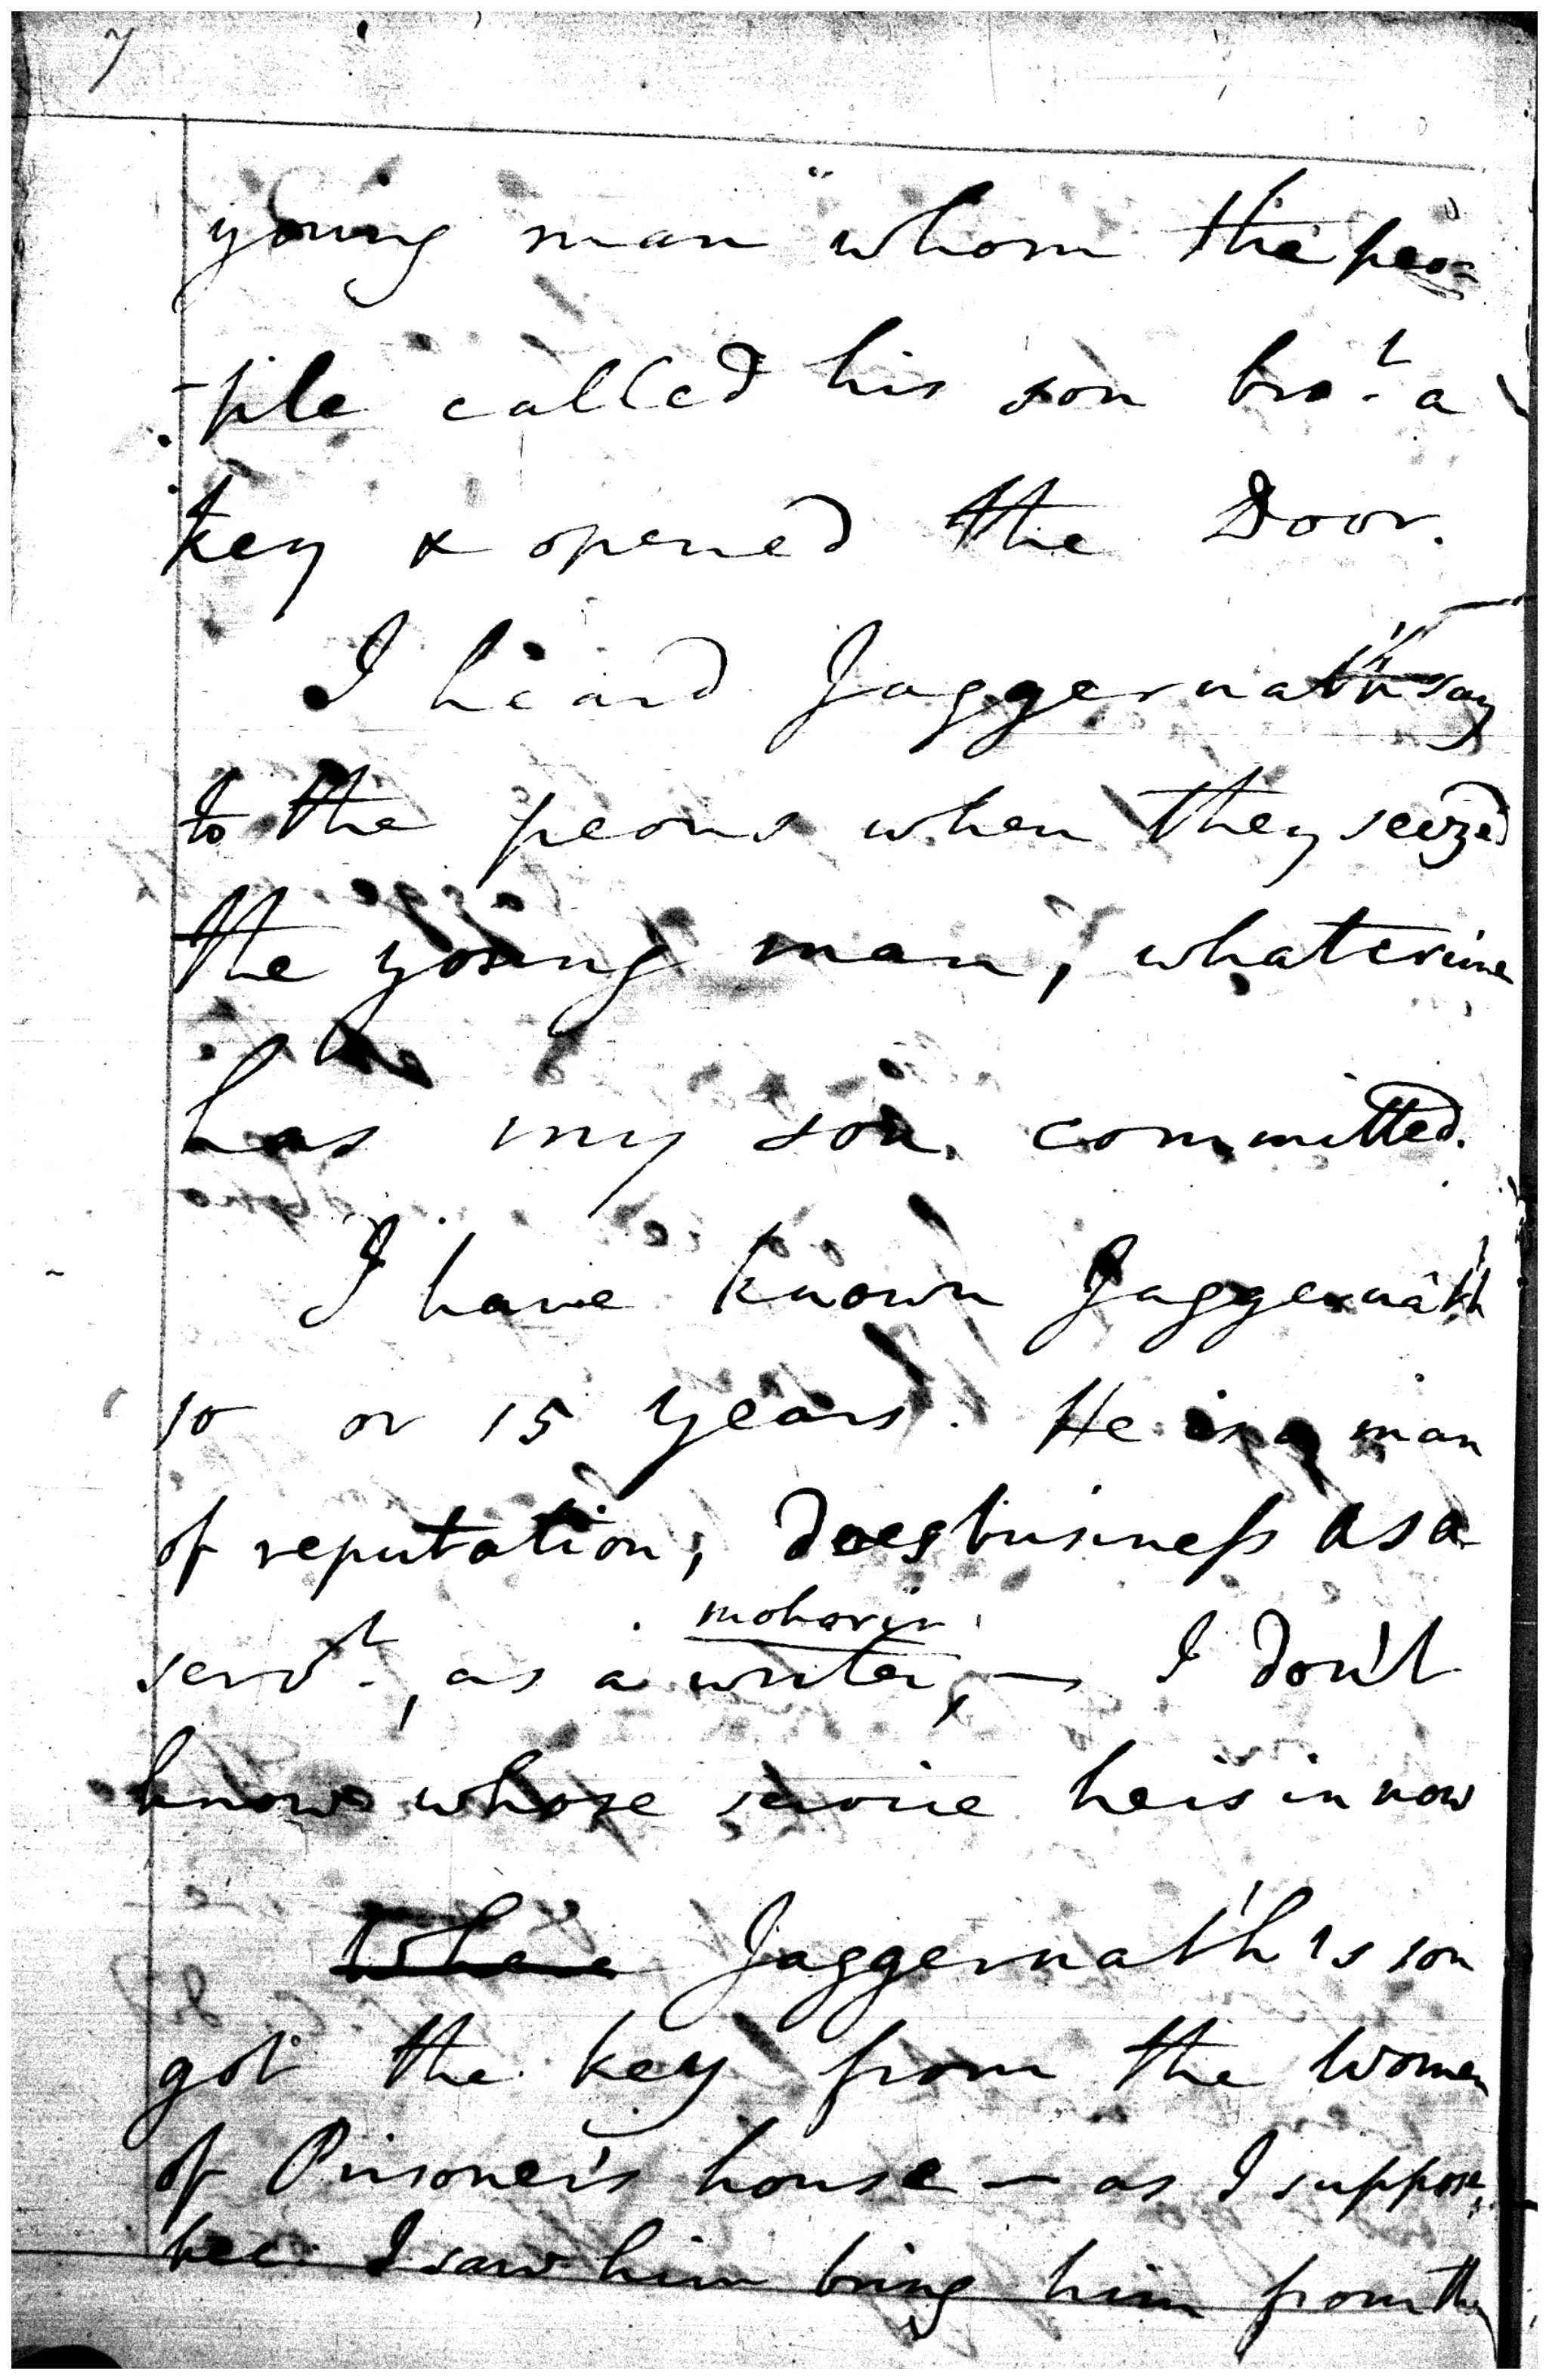 7
young man whom the peo-
-ple called his son bro.t a
key & opened the Door.
I heard Jaggernath say
to the peons when they seized
the young man, what crime
has my son committed.
I have known Jaggernath
10 or 15 years. He is a man
of reputation, does business as a
moharir
serv.t, as a writer, — I don't
know whose service he is in now
Where Jaggernath's son
got the key from the women
of Prisoner's house — as I suppose,
bec. I saw him bring him from the